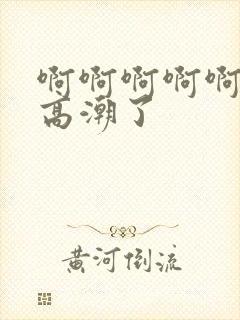 啊啊啊啊啊
高潮了
黄河倒流